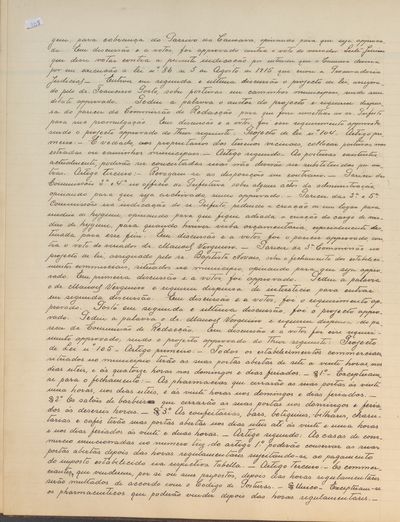 gou, para cobrança do Parecer da Camara, opinando para que seja approva-
da. Em discussão e a votos foi approvado contra o voto do vereador
que deu votos contra a presente indicação por entender que o Governo devia
por em execução a lei nº 86 de 5 de Agosto de 1915 que creou a Procuradoria
Judicial. — Entrou em segunda e ultima discussão o projecto de lei assigna-
do pelo dr. Francisco Porto sobre porteiras em caminhos municipaes, sendo sem
debate approvado. Pediu a palavra o autor do projecto e requereu dispen-
sa do parecer da Commissão de Redacção para que fosse remettido ao Sr. Prefeito
para sua promulgação. Em discussão e a votos, foi esse requerimento approvado,
sendo o projecto approvado do theor seguinte: Projecto de lei nº 104. Artigo pri-
meiro: — É vedado, aos proprietarios dos terrenos visinhos, collocar porteiras nas
estradas ou caminhos municipaes. — Artigo segundo: As porteiras existentes,
actualmente, poderão ser concertadas mas não devem ser substituidas por ou-
tras. Artigo terceiro: — Revogam-se as disposições em contrario. — Parecer das
Commissões 3ª e 4ª no officio da Prefeitura sobre alguns actos da administração,
opinando para que seja archivado, sendo approvado. — Parecer das 3ª e 5ª
Commissões na indicação do sr. Prefeito pedindo a creação de um logar para
medico de hygiene, opinando para que fique adiada a creação do cargo de me-
dico de hygiene, para quando houver verba orçamentaria, expressamente des-
tinada para esse fim. Em discussão e a votos foi o parecer approvado con-
tra o voto do vereador dr. Manoel Vergueiro. — Parecer da 5ª Commissão no
projecto de lei, assignado pelo sr. Baptista Novaes, sobre o fechamento dos estabeleci-
mentos commerciaes, situados no municipio, opinando para que seja appro-
vado. Em primeira discussão e a votos foi approvado. Pediu a palavra
o dr. Manoel Vergueiro e requereu dispensa de intersticio para entrar
em segunda discussão. Em discussão e a votos foi o requerimento ap-
provado. Posto em segunda e ultima discussão, foi o projecto appro-
vado. Pediu a palavra o dr. Manoel Vergueiro e requereu dispensa do pa-
recer da Commissão de Redacção. Em discussão e a votos foi esse requeri-
mento approvado, sendo o projecto approvado do theor seguinte: Projecto
de Lei nº 105. — Artigo primeiro: — Todos os estabelecimentos commerciaes,
situados no municipio terão as suas portas abertas até ás vinte horas nos
dias uteis, e ás quatorze horas nos domingos e dias feriados. — § 1º — Exceptuam-
se para o fechamento: — As pharmacias que cerrarão as suas portas ás vinte
uma horas, nos dias uteis, e ás vinte horas nos domingos e dias feriados. —
§ 2º Os salões de barbeiro que cerrarão as suas portas nos domingos e feria-
dos ás dezeseis horas. — § 3º As confeitarias, bars, botequins, bilhares, charu-
tarias e cafés terão suas portas abertas nos dias uteis até ás vinte e uma horas
e nos dias feriados ás vinte e duas horas. — Artigo segundo: As casas de com-
mercio mencionadas no numero tres do artigo 1º poderão conservar as suas
portas abertas depois das horas regulamentares sujeitando-se ao pagamento
do imposto estabelecido na respectiva tabella. — Artigo terceiro: — Os commer-
ciantes, que venderem, por si ou seus prepostos, depois das horas regulamentares
serão multados de accordo com o Codigo de Posturas. — § Unico. Exceptuam-se
os pharmaceuticos que poderão vender depois das horas regulamentares. —